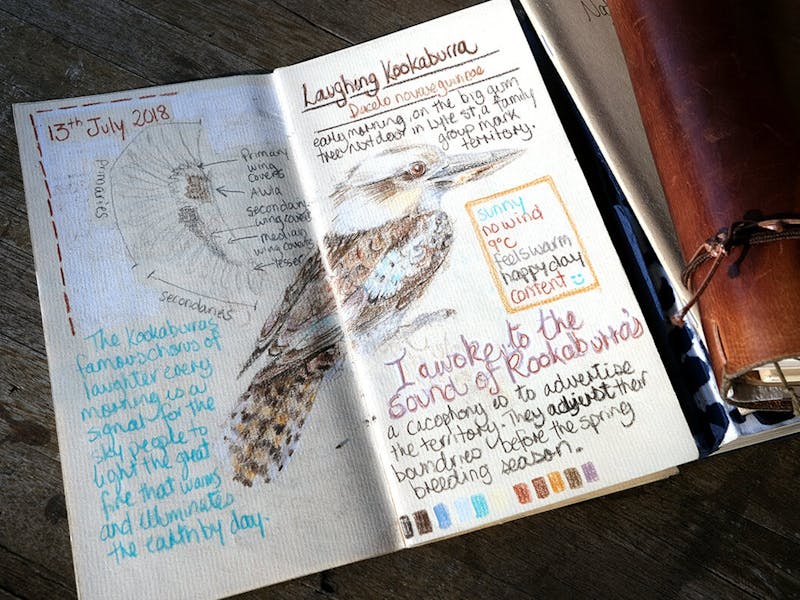 13th July 2018
Primaries
Primary
wing
covers
Alula
secondary
wing covers
median
wing covers
lesser
secondaries
The Kookaburra's
famous chorus of
laughter every
morning is a
signal for the
sky people to
light the great
fire that warms
and illuminates
the earth by day.
Laughing Kookaburra
Dacelo novaeguineae
early morning, on the big gum
tree next door in Lyle st, a family
group mark
territory.
sunny
no wind
9°C
feels warm
happy day
content
I awoke to the
sound of Kookaburra's
a cacophony is to advertise
the territory. They adjust ther
boundries before the spring
breeding season.
No